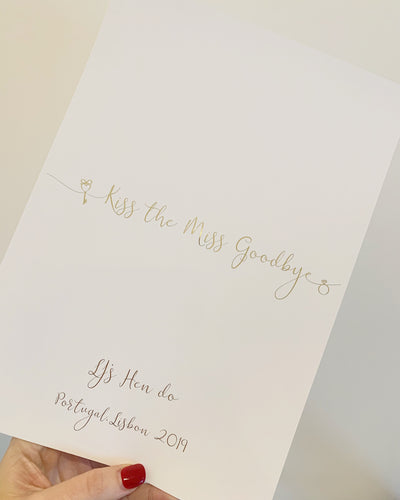 Kiss the Miss Goodbye
LJ's Hen do
Portugal, Lisbon 2019